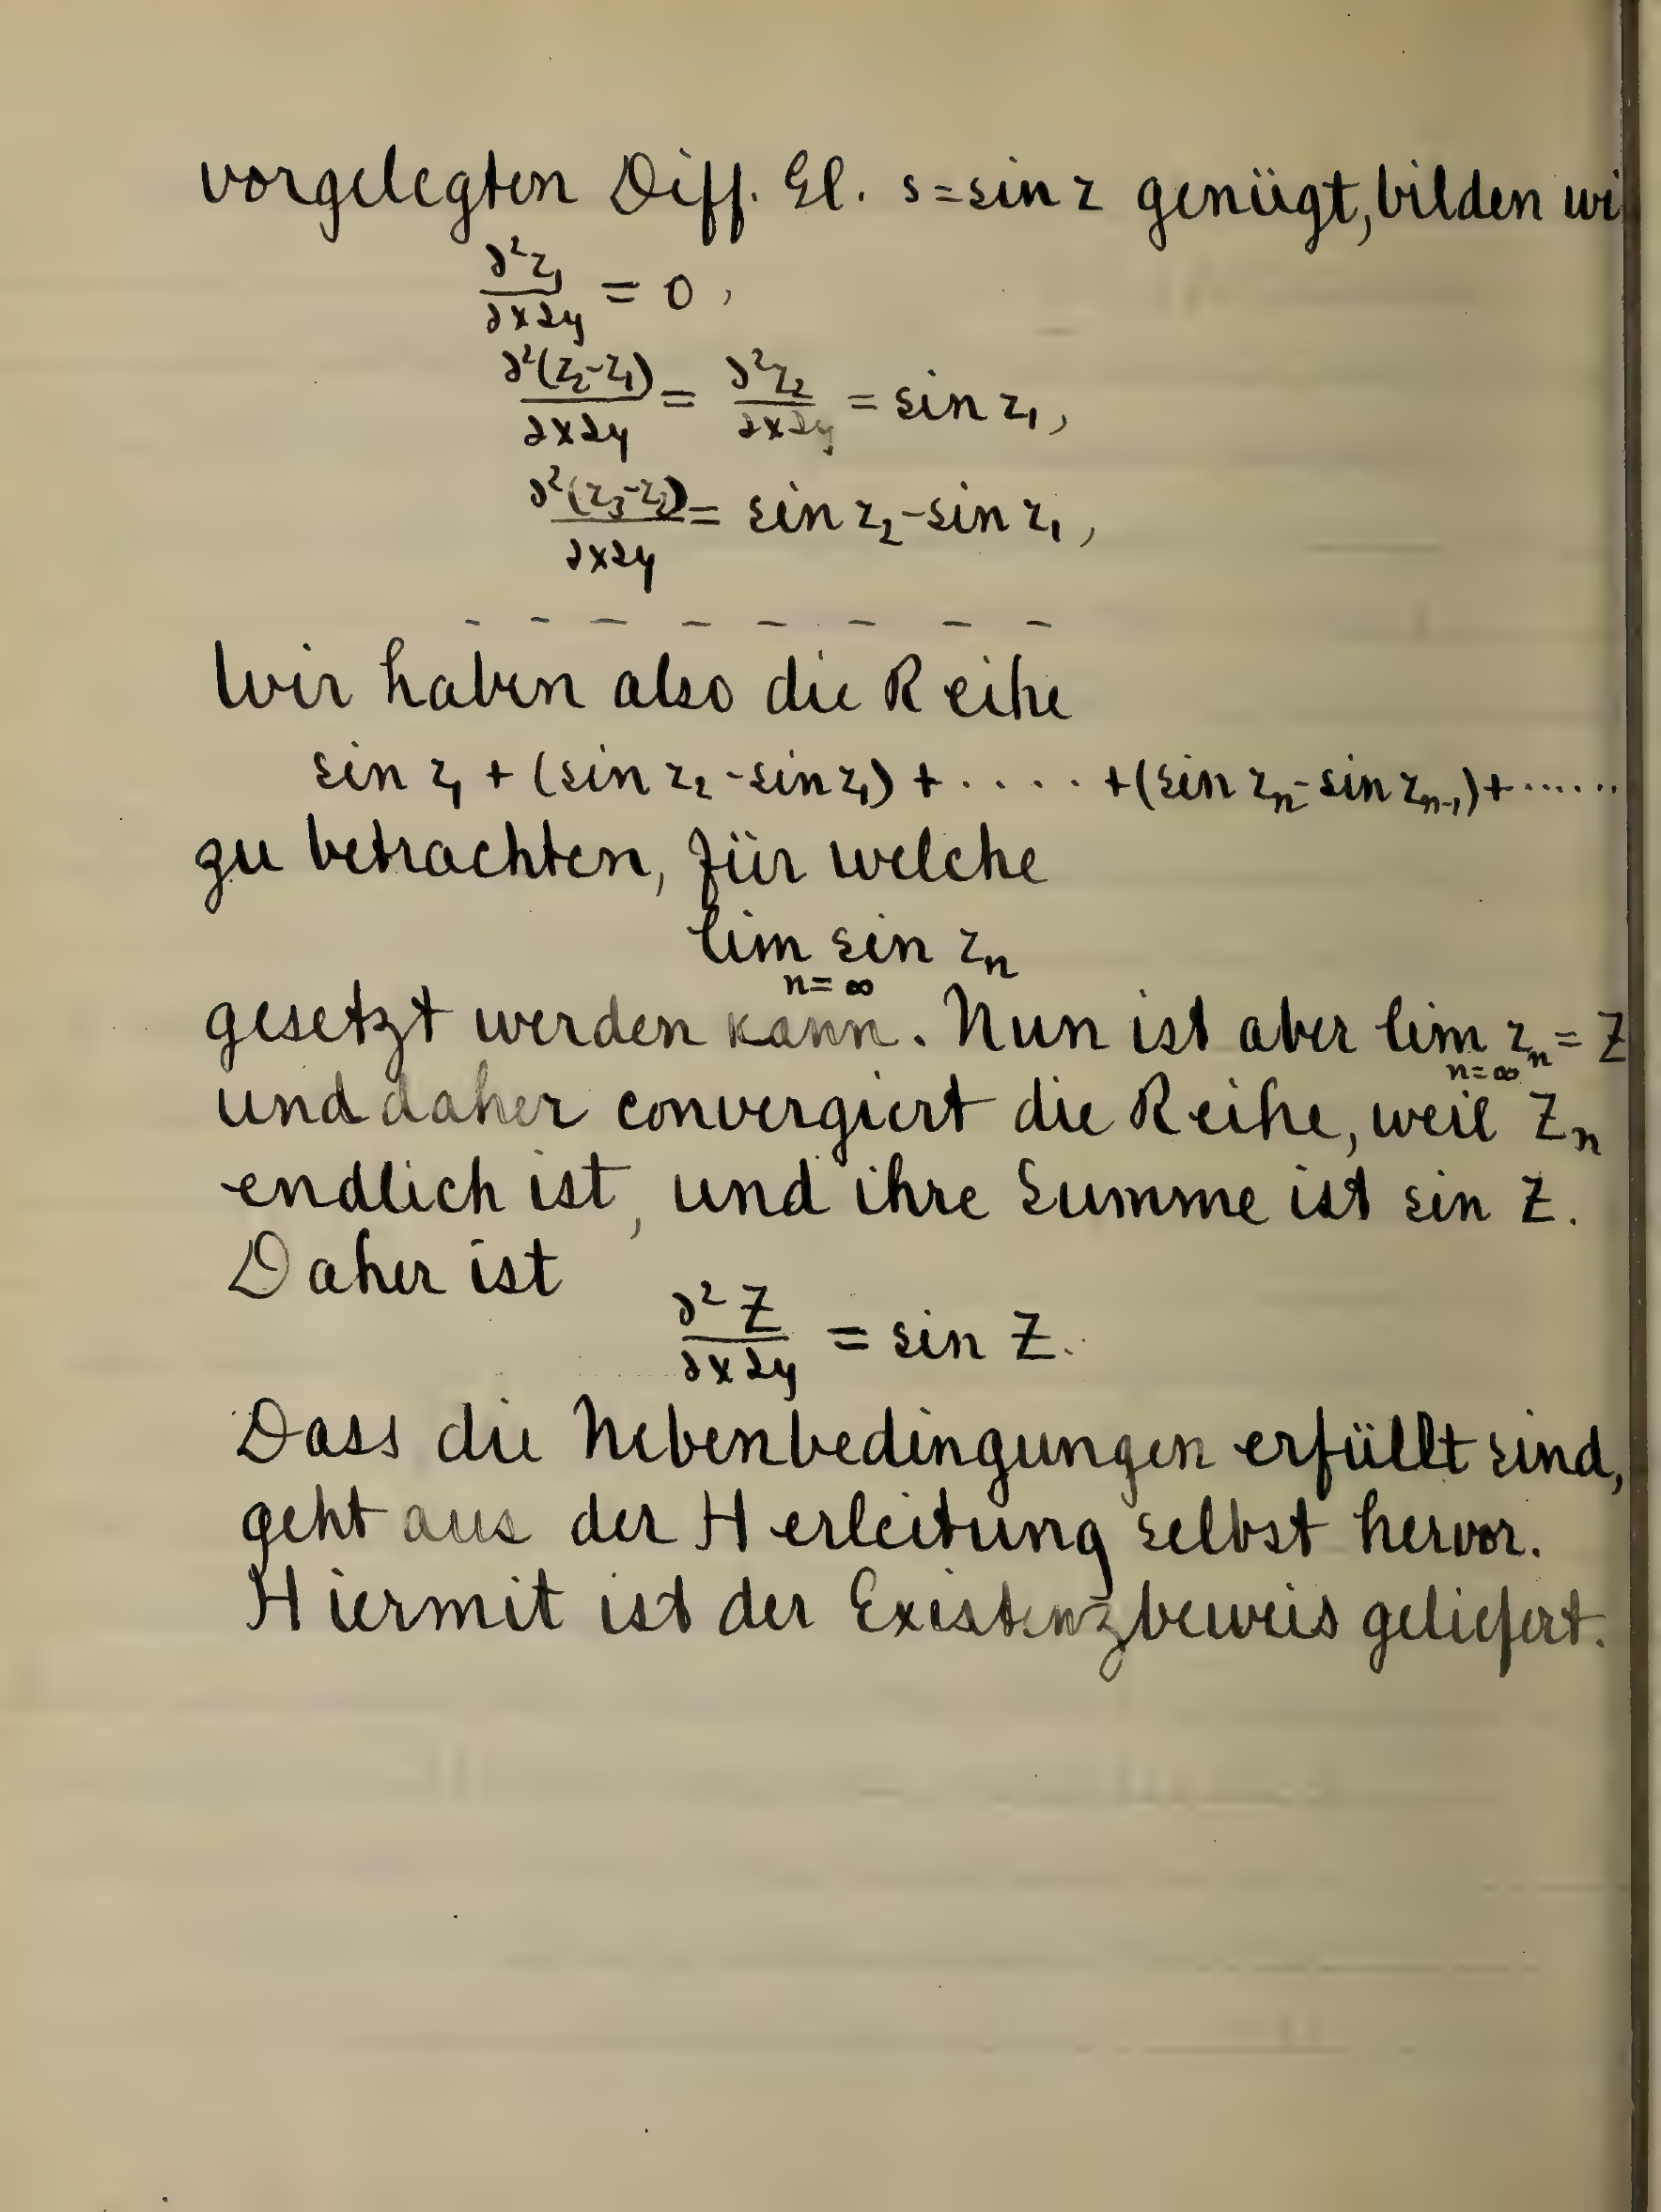 vorgelegten Diff. Gl. s = sin z genügt, bilden wi
∂²z₁/∂x∂y = 0,
∂²(z₂-z₁)/∂x∂y = ∂²z₂/∂x∂y = sin z₁,
∂²(z₃-z₂)/∂x∂y = sin z₂ - sin z₁,
- - - - - - - -
Wir haben also die Reihe
sin z₁ + (sin z₂ - sin z₁) + ..... + (sin zₙ - sin zₙ₋₁) + ......
zu betrachten, für welche
lim sin zₙ
n=∞
gesetzt werden kann. Nun ist aber lim zₙ = Z
n=∞
und daher convergiert die Reihe, weil Zₙ
endlich ist, und ihre Summe ist sin Z.
Daher ist
∂²Z/∂x∂y = sin Z.
Dass die Nebenbedingungen erfüllt sind,
geht aus der Herleitung selbst hervor.
Hiermit ist der Existenzbeweis geliefert.